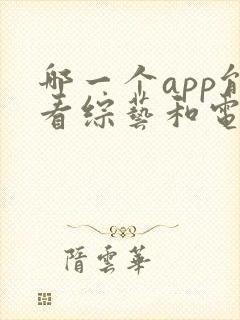 哪一个app能
看综艺和電
隋雲華